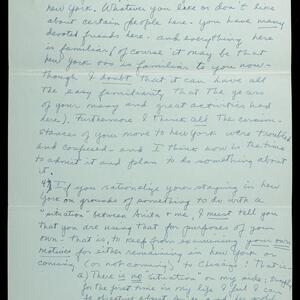 new York. Whatever you like or don't like
about certain people here. You have many
devoted friends here. and everything here
is familiar. (of course it may be that
New York too is familiar to you now-
though I doubt that it can have all
the easy familiarity that the years
of your many and great activities had
here). Furthermore I think all the circum-
stances of your move to New York were troubled
and confused - and I think now is the time
to admit it and plan to do something about
it.
4) If you rationalize your staying in new
York on grounds of something to do with a
"situation" between Anita & me, I must tell you
that you are using that for purposes of your
own. That is, to keep from examining your own
motives for either remaining in new york or
coming (or not coming) to Chicago. That is:
a) There is no "situation" on my side,
for the first time in my life I feel I can
be objective about